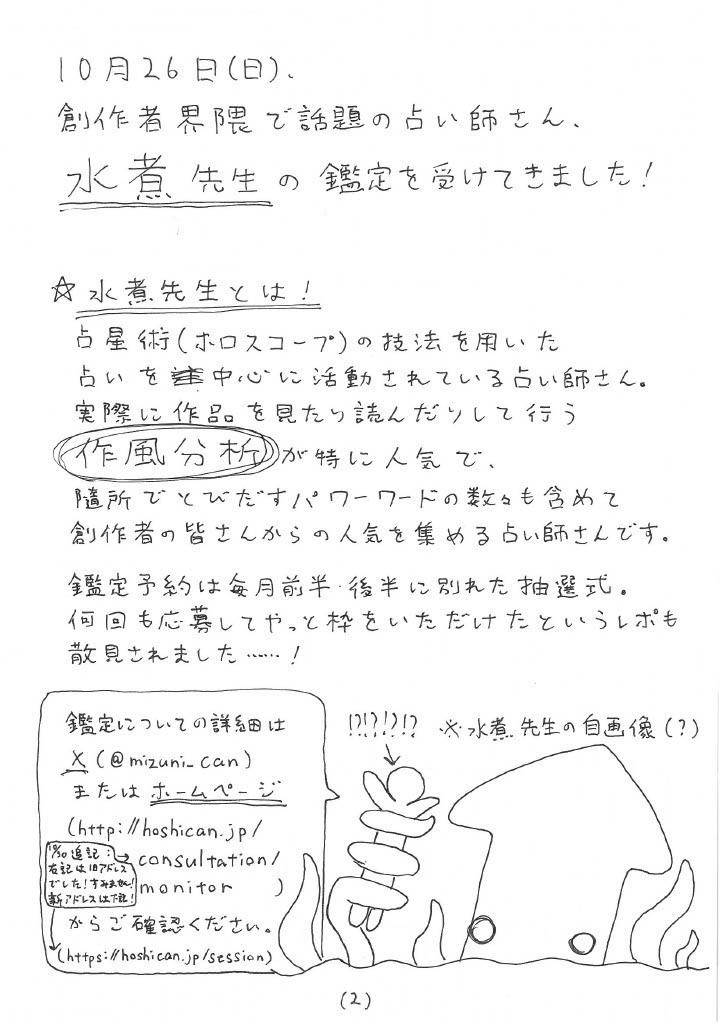 10月26日(日)、
創作者界隈で話題の占い師さん、
水煮先生の鑑定を受けてきました!
☆水煮先生とは!
占星術(ホロスコープ)の技法を用いた
占いを中心に活動されている占い師さん。
実際に作品を見たり読んだりして行う
作風分析が特に人気で、
随所でとびだすパワーワードの数々も含めて
創作者の皆さんからの人気を集める占い師さんです。
鑑定予約は毎月前半・後半に別れた抽選式。
何回も応募してやっと枠をいただけたというレポも
散見されました……!
鑑定についての詳細は
X(@mizuni_can)
またはホームページ
(http://hoshican.jp/
consultation/
monitor )
10/30追記:→
右記は旧アドレス
でした!すみません!
新アドレスは下記!
からご確認ください。
(https://hoshican.jp/session)
!?!?!?!?
※水煮先生の自画像(?)
(2)